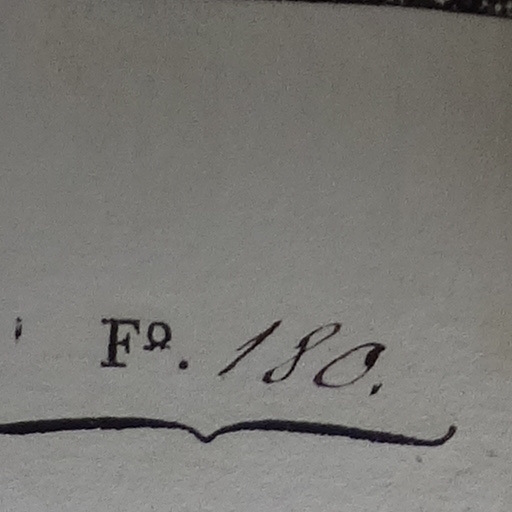 Fº. 180.